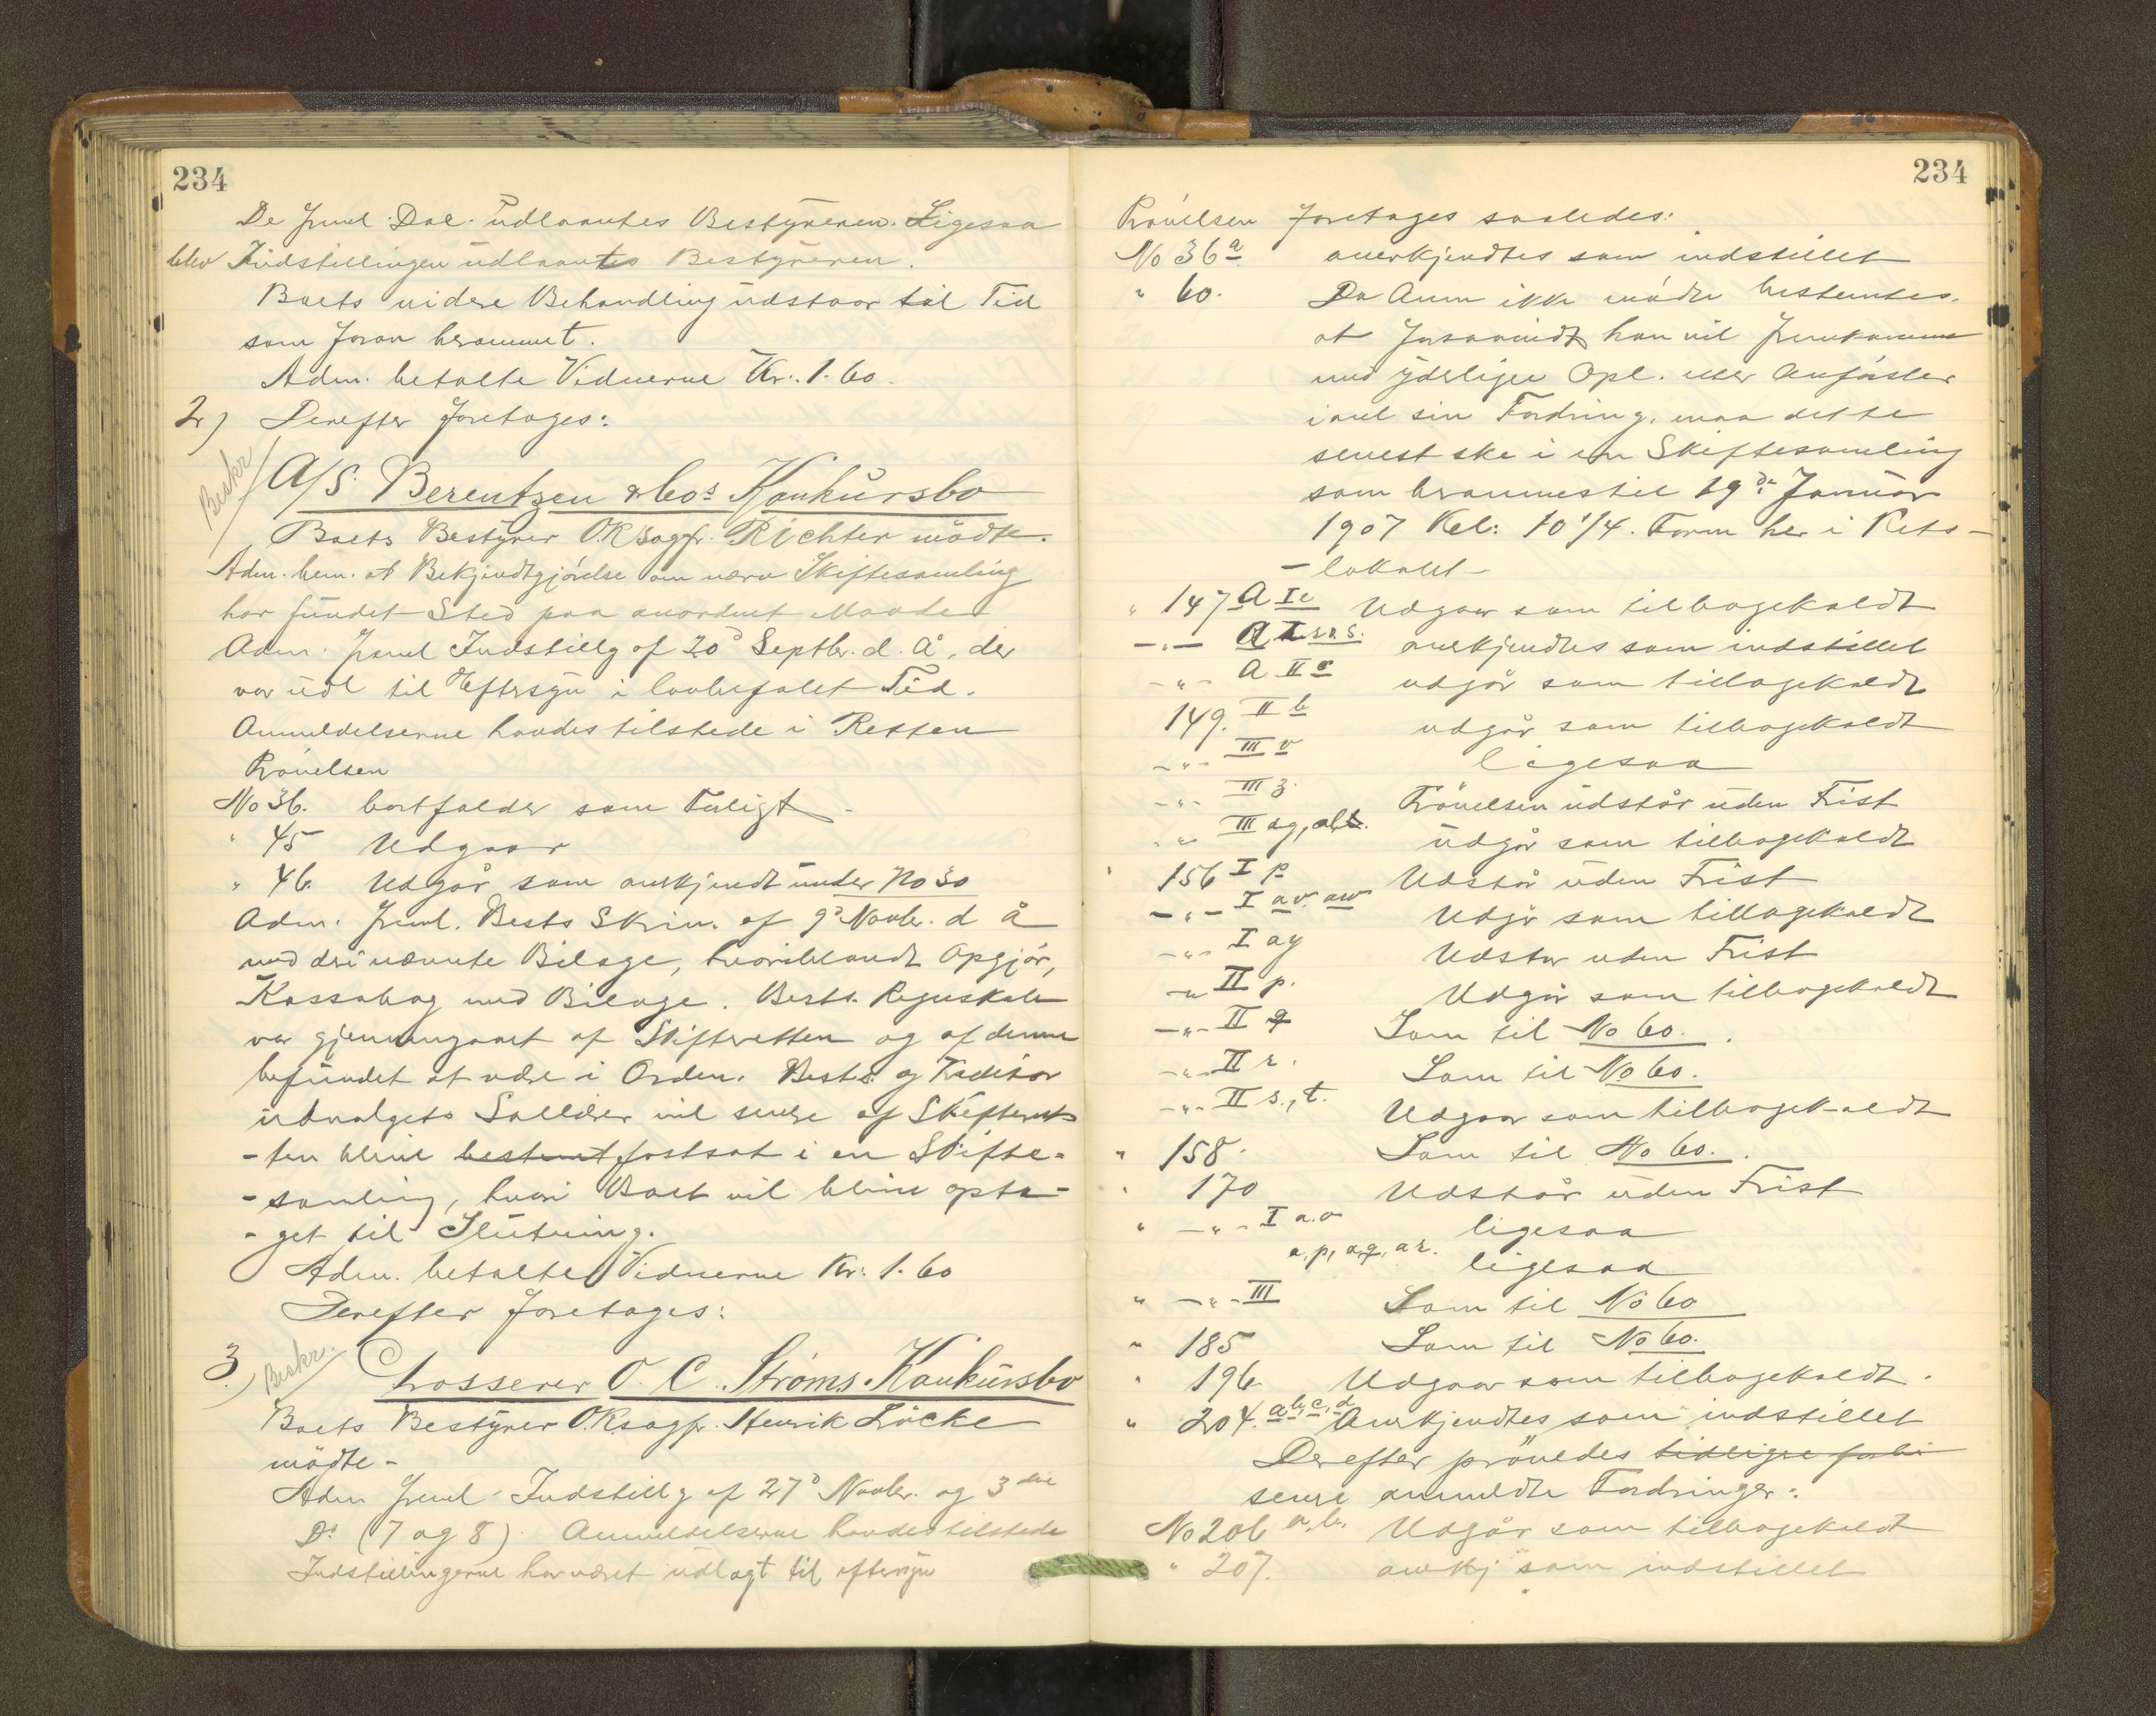 234
De freml. Dok. udlaantes Bestyreren. Ligesaa
blev Indstillingen udlaantes Bestyreren.
Boets videre Behandling udstaar til Tid
som foran berammet.
Adm. betalte Vidnerne Kr. 1.60.
2) Derefter foretages:
Beskr
A/S. Berentzen & Cos Konkursbo
Boets Bestyrer ORsagfr. Richter mödte.
Adm. bem. at Bekjendtgjörelse om nærv Skiftesamling
har fundet Sted paa anordnet Maade
Adm. freml Indstillg af 20d Septbr. d. å., der
var udl til Eftersyn i lovbefalet Tid.
Anmeldelserne havdes tilstede i Retten
Prövelsen
No 36. bortfalder som Farligt -
" 45 Udgaar
" 46. Udgår som anerkjendt under No 30
Adm. freml. Bests Skriv. af 9d Novbr. d å
med deri nævnte Bilage, hvoriblandt Opgjör,
Kassabog med Bilage. Bests. Regnskab
var gjennemgaaet af Skifteretten og af denne
befundet at være i Orden. Bests. og Kreditor
udvalgets Sallær vil senere af Skifteret-
-ten blive bestemt fastsat i en Skifte-
-samling, hvori Boet vil blive opta-
-get til Slutning.
Adm. betalte Vidnerne Kr. 1.60
Derefter foretages:
3) Beskr.
Grosserer O. C. Ströms Konkursbo
Boets Bestyrer ORsagfr. Henrik Lücke
mödte -
Adm freml Indstillg af 27d Novbr. og 3die
Ds (7 og 8). Anmeldelserne havdes tilstede
Indstillingerne har været udlagt til eftersyn
234
Prövelsen foretages saaledes:
No 36a anerkjendtes som indstillet
" 60. Da Anm ikke mödte bestemtes,
at forsaavidt han vil fremkomme
med yderligere Opl. eller Anförsler
i anl sin Fordring, maa dette
senest ske i en Skiftesamling
som berammes til 19de Januar
1907 Kl: 10 1/4. Form her i Rets-
-lokalet -
" 147 A I e Udgaar som tilbagekaldt
-"- A I r & s. anerkjendtes som indstillet
-"- A II e udgår som tilbagekaldt
149. II b udgår som tilbagekaldt
-"- III v ligesaa
-"- III z. Prövelsen udstår uden Frist
-"- III ag, ab. udgår som tilbagekaldt
" 156 I p Udstår uden Frist
-"- I av. aw Udgår som tilbagekaldt
-"- I ay Udstår uden Frist
-"- II p. Udgår som tilbagekaldt
-"- II q Som til No 60.
-"- II r. Som til No 60.
-"- II s., t. Udgaar som tilbagekaldt
" 158. Som til No 60.
" 170 Udstår uden Frist
" -"- I a.o ligesaa
a,p, a,q, ar. ligesaa
" -"- III Som til No 60
" 185 Som til No 60.
" 196 Udgaar som tilbagekaldt.
" 204. a, b, c, d Anerkjendtes som indstillet
Derefter prövedes tidligere
senere anmeldte Fordringer:
No 206 a, b. Udgår som tilbagekaldt
" 207. anerkj som indstillet